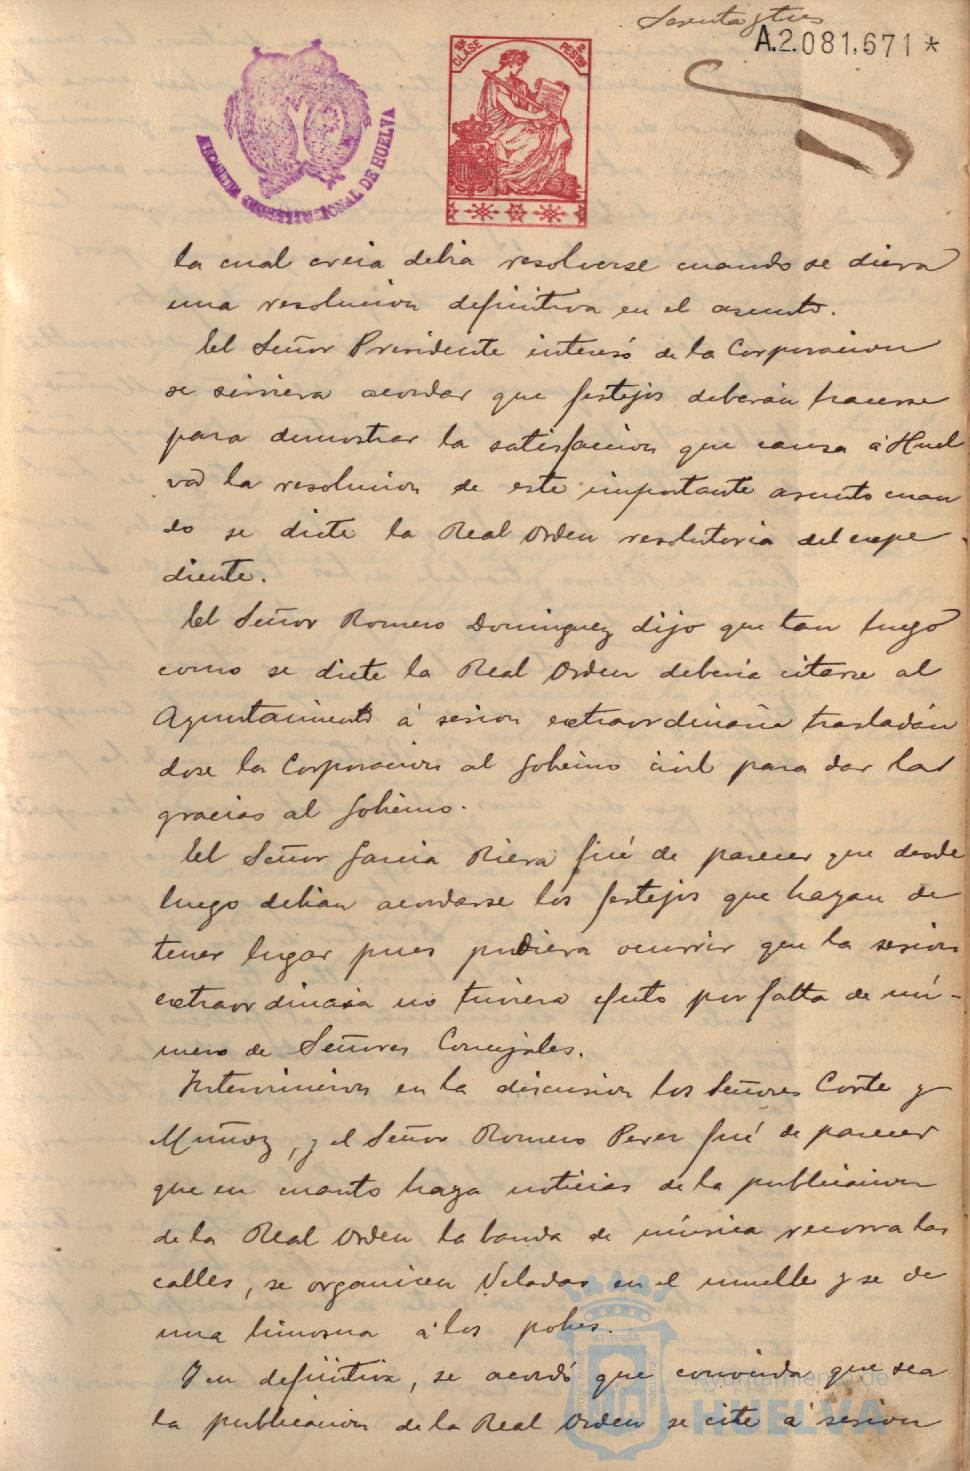 Sesenta y tres
A.2.081,671 *
11ª CLASE
2 PESETAS
CONSTITUCIONAL DE HUELVA
la cual creia debia resolverse cuando se diera
una resolucion definitiva en el asunto.
El Señor Presidente interesó de la Corporacion
se sirviera acordar que festejos deberán hacerse
para demostrar la satisfaccion que causa á Huel
va la resolucion de este importante asunto cuan
do se dicte la Real Orden resolutoria del expe
diente.
El Señor Romero Dominguez dijo que tan luego
como se dicte la Real Orden deberia citarse al
Ayuntamiento á sesion extraordinaria trasladán
dose la Corporacion al Gobierno civil para dar las
gracias al Gobierno.
El Señor Garcia Riera fué de parecer que desde
luego debian acordarse los festejos que hayan de
tener lugar pues pudiera ocurrir que la sesion
extraordinaria no tuviera efecto por falta de nú-
mero de Señores Concejales.
Intervinieron en la discusion los Señores Corte y
Muñoz, y el Señor Romero Perez fué de parecer
que en cuanto haya noticias de la publicacion
de la Real Orden la banda de música recorra las
calles, se organicen Veladas en el muelle y se de
una limosna á los pobres.
Y en definitiva, se acordó que conocida que sea
la publicacion de la Real Orden se cite á sesion
Ayuntamiento de
HUELVA